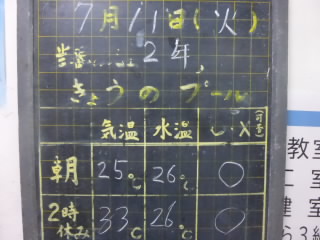 7月11日(火)
当番 2年
きょうのプール
気温 水温 (可否)
朝 25℃ 26℃ ○
2時休み 33℃ 26℃ ○
教室
室
室